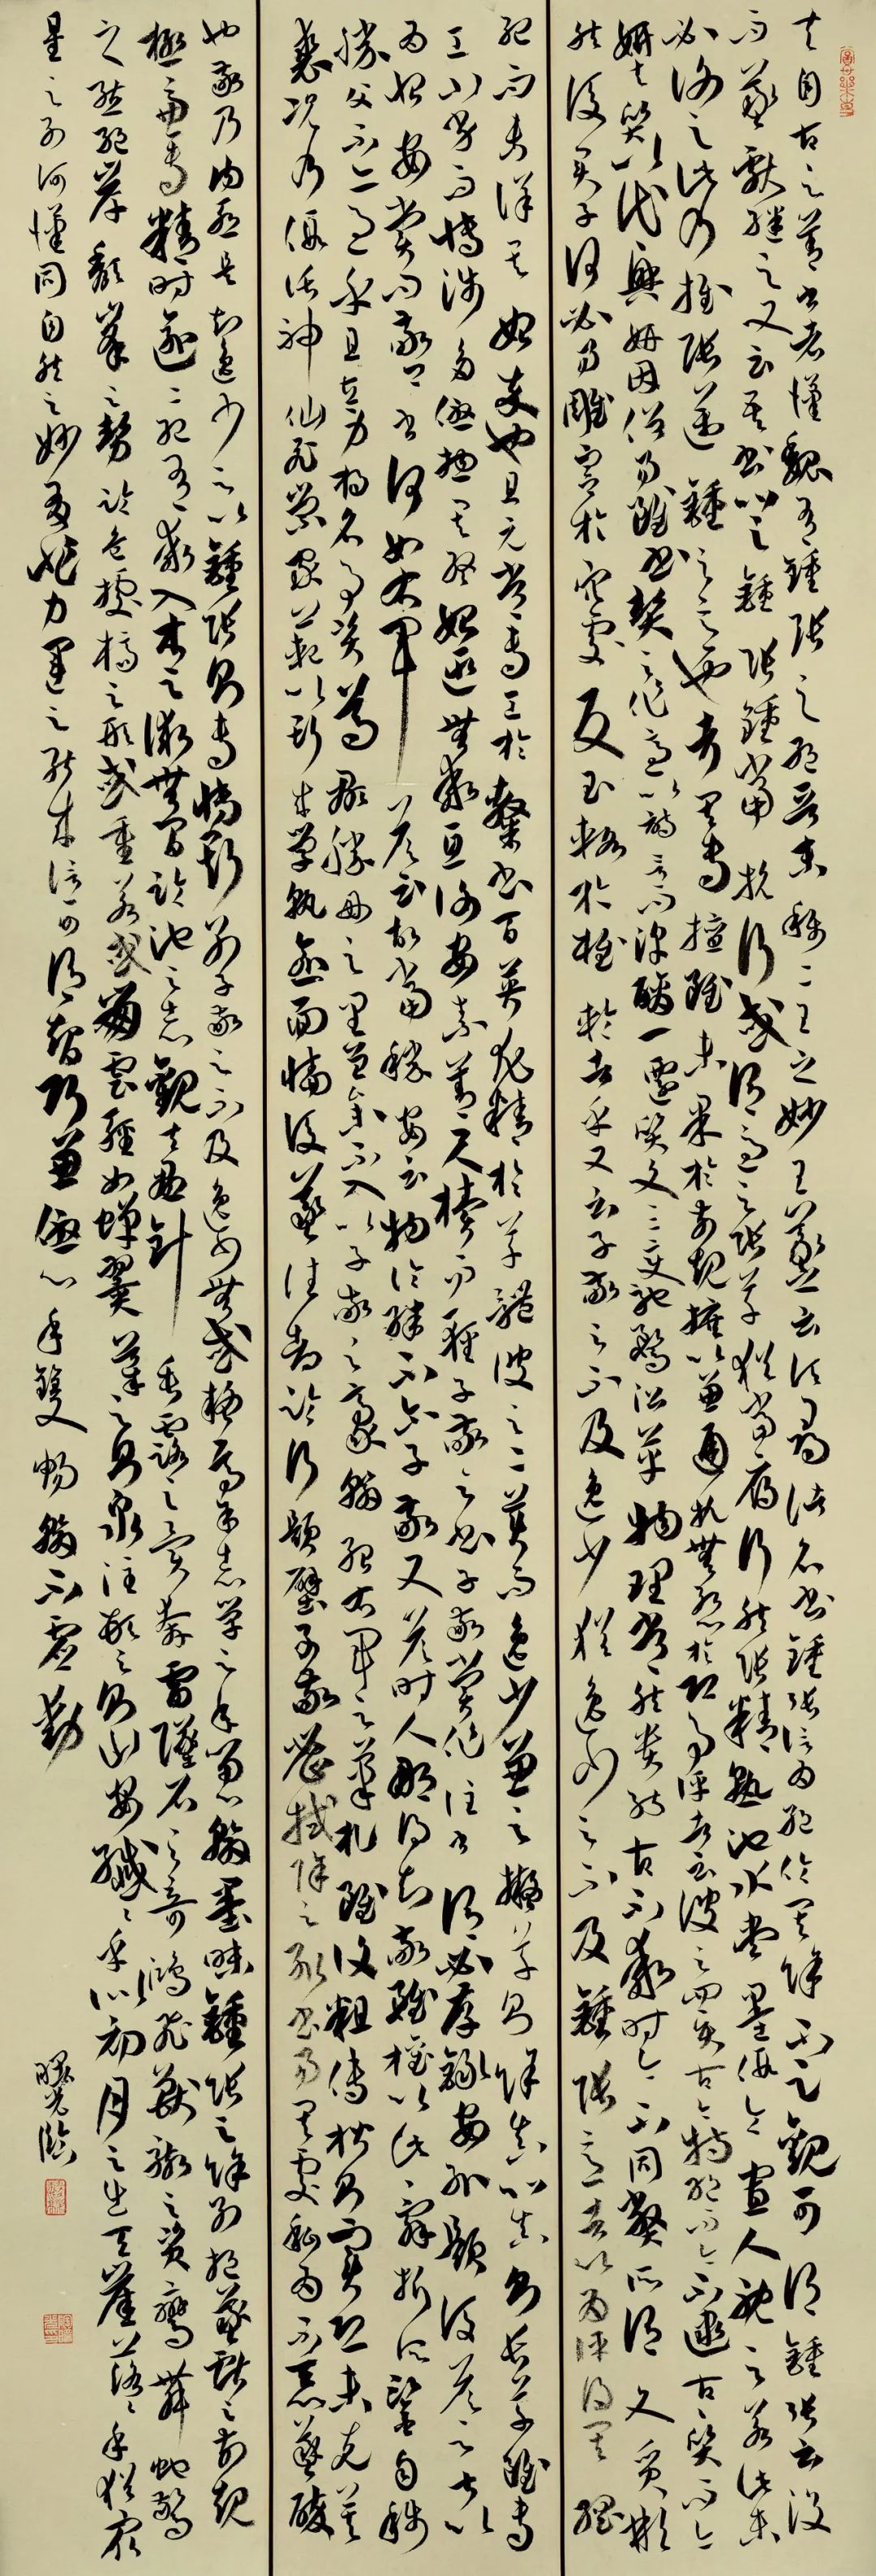 夫自古之善書者漢魏有鍾張之絕晉末稱二王之妙王羲之云頃尋諸名書鍾張信為絕倫其餘不足觀可謂鍾張云沒
而羲獻繼之又云吾書比之鍾張鍾當抗行或謂過之張草猶當雁行然張精熟池水盡墨假令寡人耽之若此未
必謝之此乃推張邁鍾之意也考其專擅雖未果於前規摭以兼通故無慚於即事評者云彼之四賢古今特絕而今不逮古古質而今
妍夫質以代興妍因俗易雖書契之作適以記言而淳醨一遷質文三變馳騖沿革物理常然貴能古不乖時今不同弊所謂文質彬彬
然後君子何必易雕宮於穴處反玉輅於椎輪者乎又云子敬之不及逸少猶逸少之不及鍾張意者以為評得其綱
紀而未詳其始卒也且元常專工於隸書百英尤精於草體彼之二美而逸少兼之擬草則餘真比真則長草雖專
工小劣而博涉多優總其終始匪無乖互謝安素善尺牘而輕子敬之書子敬嘗作佳書與之謂必存錄安輒題後答之甚以
為恨安嘗問敬卿書何如右軍答云故當勝安云物論殊不爾子敬又答時人那得知敬雖權以此辭折安所鑒自稱
勝父不亦過乎且立身揚名事資尊顯勝母之里曾參不入以子敬之豪翰紹右軍之筆札雖復粗傳楷則實恐未克箕
裘況乃假託神仙恥崇家範以斯成學孰愈面牆後羲之往都臨行題壁子敬密拭除之輒書易其處私為不惡羲醉
也敬乃內慚是知逸少之比鍾張則專博斯別子敬之不及逸少無或疑焉余志學之年留心翰墨味鍾張之餘烈挹羲獻之前規
極慮專精時逾二紀有乖入木之術無間臨池之志觀夫懸針垂露之異奔雷墜石之奇鴻飛獸駭之資鸞舞蛇驚
之態絕岸頹峰之勢臨危據槁之形或重若或崩雲輕如蟬翼導之則泉注頓之則山安纖纖乎似初月之出天崖落落乎猶眾
星之列河漢同自然之妙有非力運之能成信可謂智巧兼優心手雙暢翰不虛動
光臨